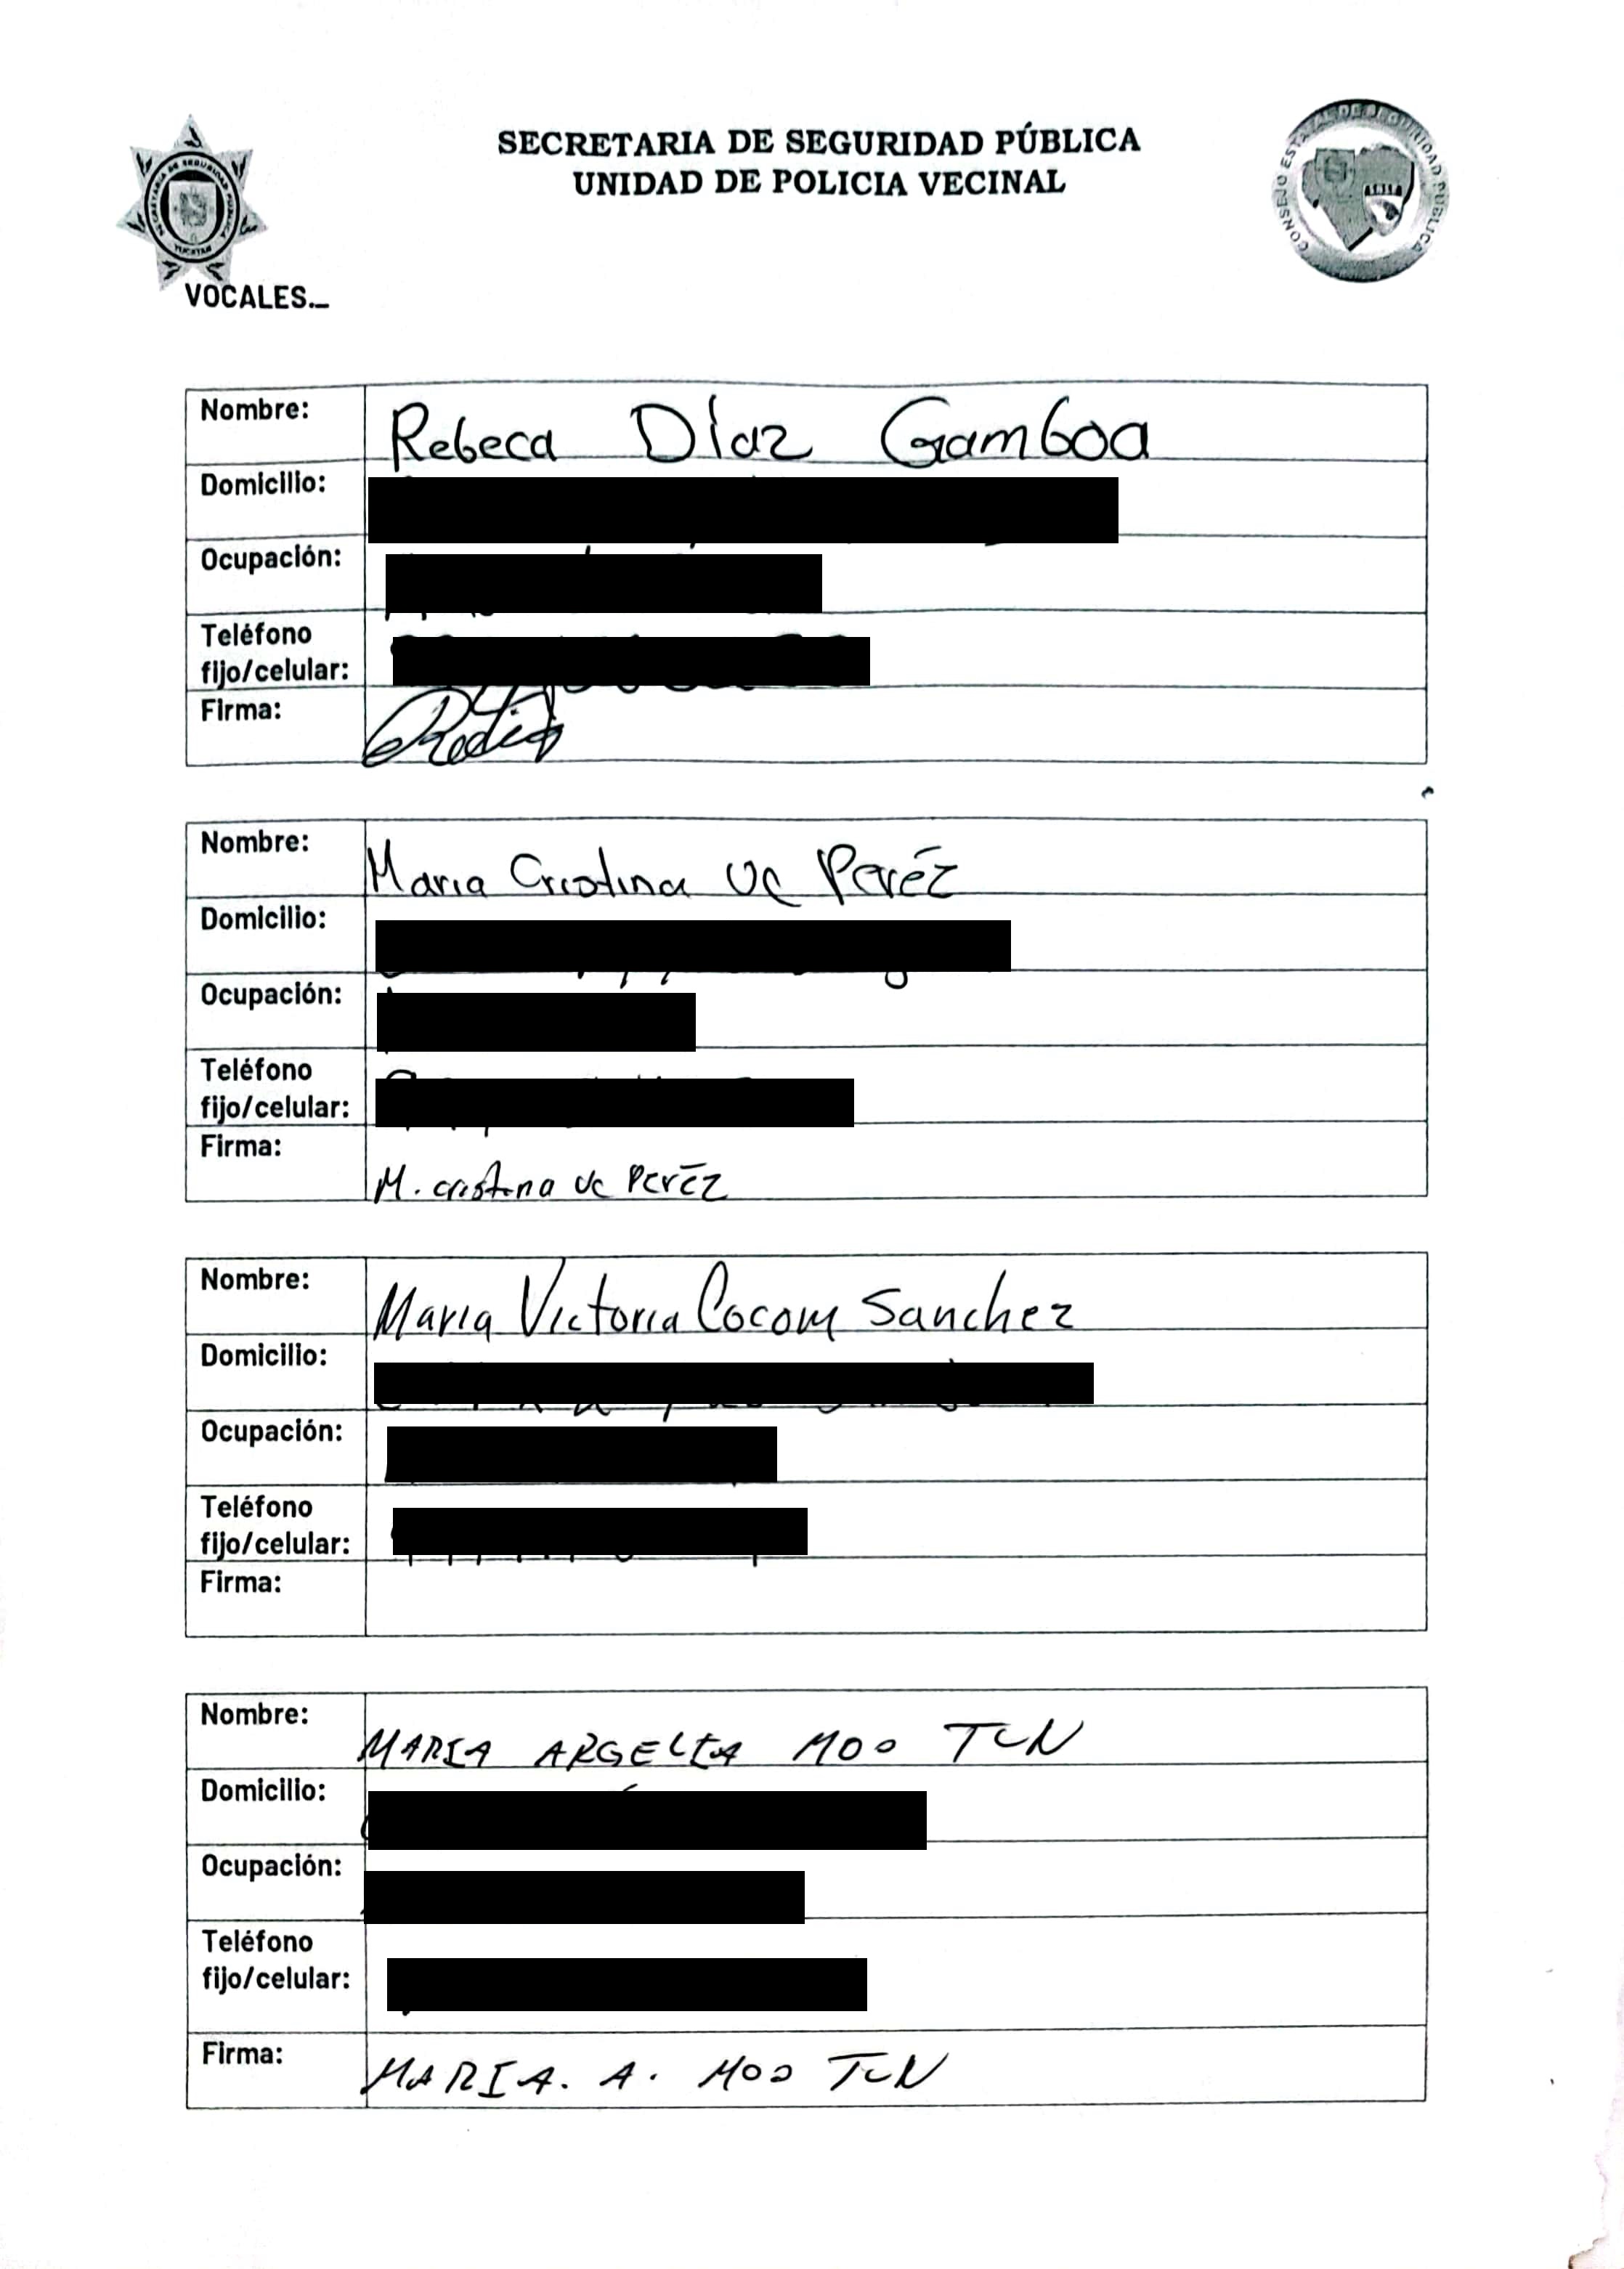 SECRETARIA DE SEGURIDAD PÚBLICA
UNIDAD DE POLICIA VECINAL
SECRETARIA DE SEGURIDAD PUBLICA
YUCATAN
CONSEJO ESTATAL DE SEGURIDAD PUBLICA
VOCALES._
Nombre: Rebeca Díaz Gamboa
Domicilio:
Ocupación:
Teléfono
fijo/celular:
Firma:
Nombre: Maria Cristina Uc Peréz
Domicilio:
Ocupación:
Teléfono
fijo/celular:
Firma: M. cristina Uc Peréz
Nombre: Maria Victoria Cocom Sanchez
Domicilio:
Ocupación:
Teléfono
fijo/celular:
Firma:
Nombre: MARIA ARGELIA MOO TUN
Domicilio:
Ocupación:
Teléfono
fijo/celular:
Firma: MARIA. A. MOO TUN